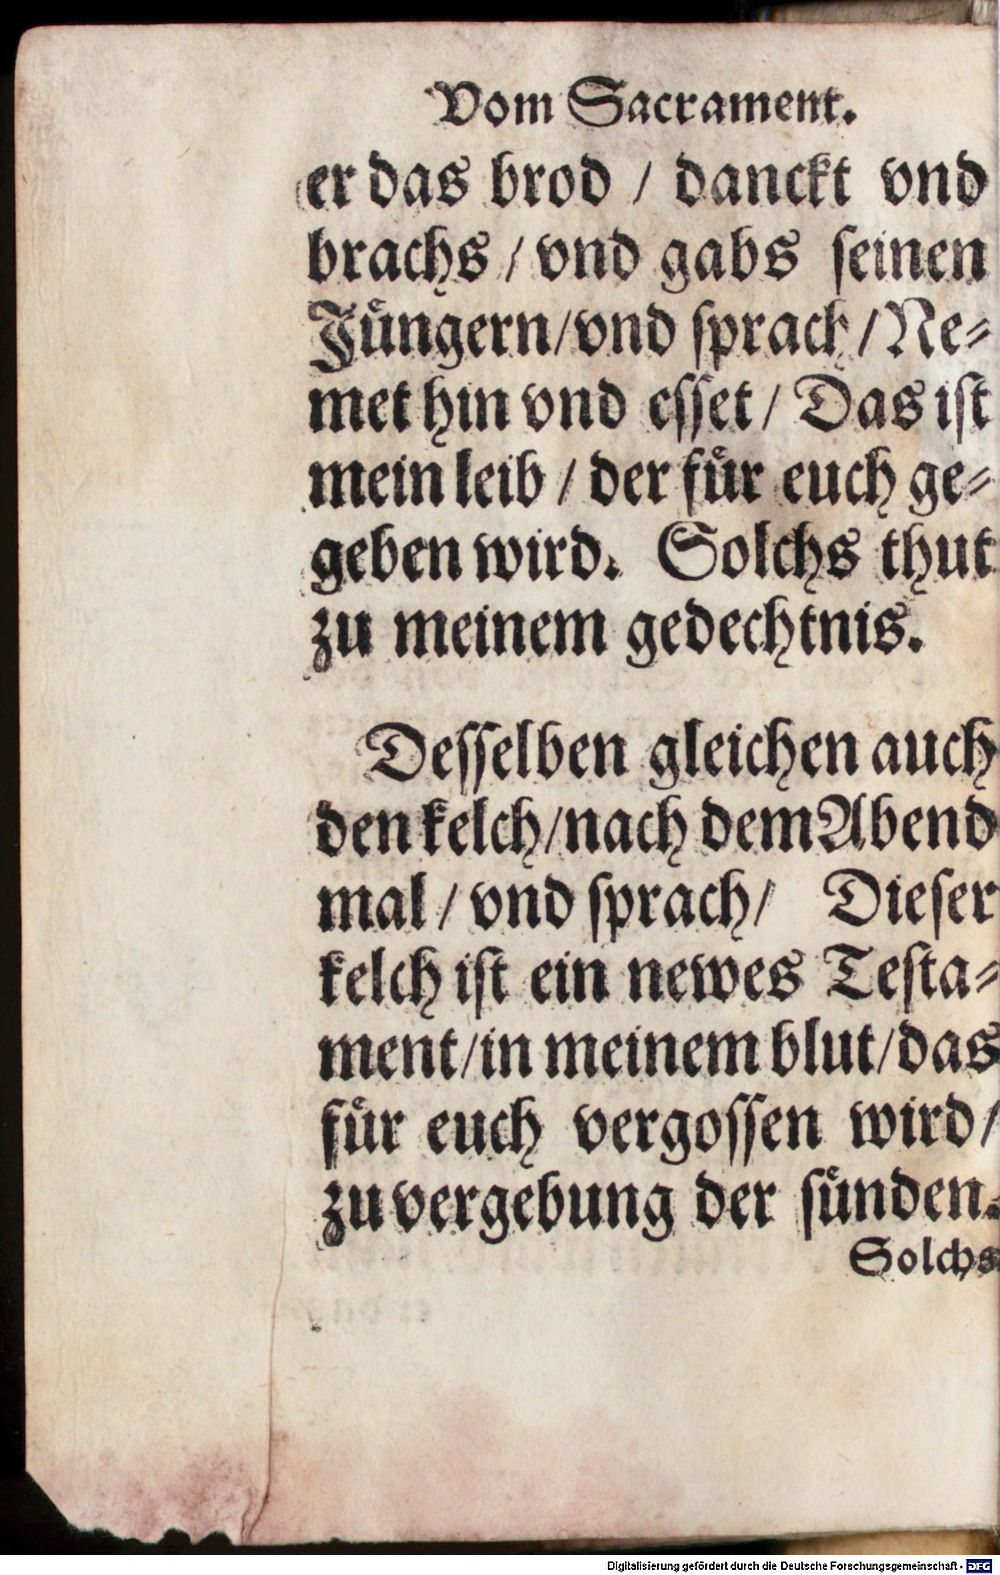 Vom Sacrament.
er das brod / danckt vnd
brachs / vnd gabs ſeinen
Juͤngern/vnd ſprach / Ne⸗
met hin vnd eſſet / Das iſt
mein leib / der fuͤr euch ge⸗
geben wird. Solchs thut
zu meinem gedechtnis.
Deſſelben gleichen auch
den kelch/nach dem Abend
mal / vnd ſprach / Dieſer
kelch iſt ein newes Teſta⸗
ment/in meinem blut/das
fuͤr euch vergoſſen wird/
zu vergebung der ſuͤnden.
Solchs
Digitalisierung gefördert durch die Deutsche Forschungsgemeinschaft - DFG